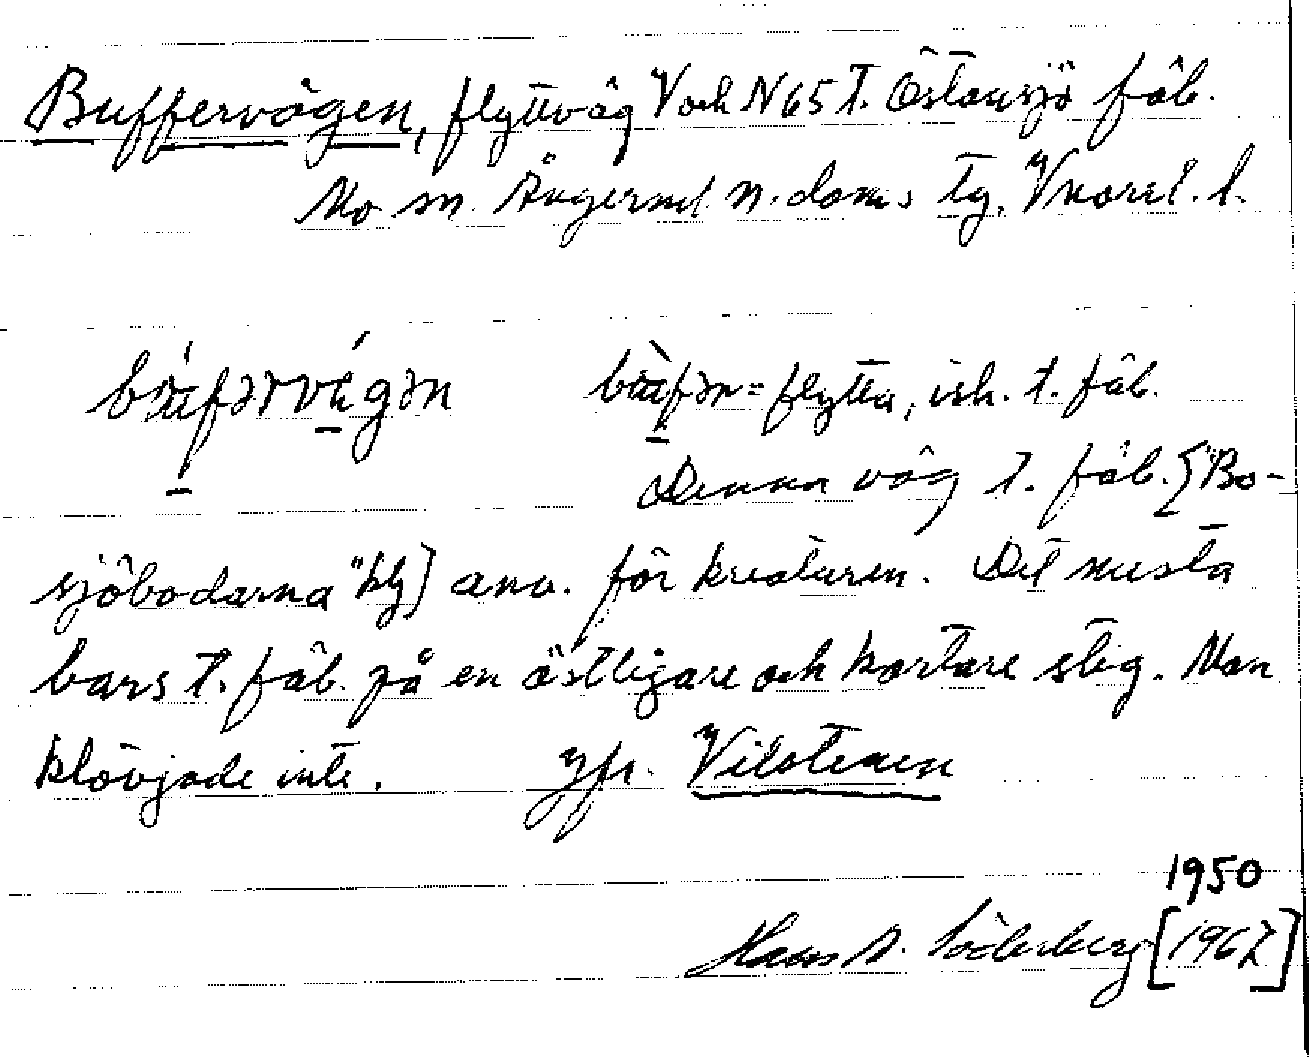 Buffervägen, flyttväg V och N 65 t. Östansjö fäb.
Mo sn. Ångerml. n. doms tg. Vnorrl. l.
buffərn = flytta, isht. t. fäb.
Denna väg t. fäb. [Bo-
sjöbodarna "blg] anv. för kreaturen. Det mesta
bars t. fäb. på en östligare och kortare stig. Man
klövjade inte. Jfr. Vilstenen
1950
Hans A. Söderberg [1967]